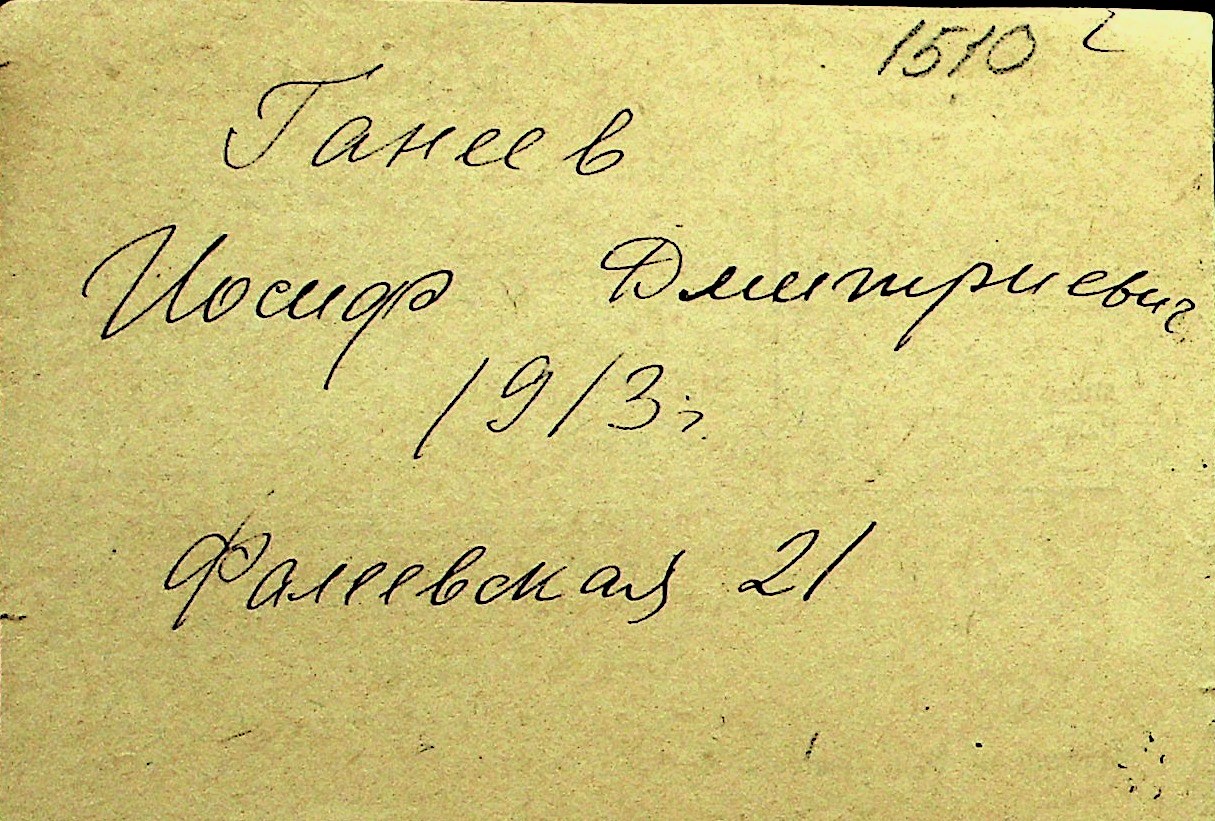 1510
Ганеев
Иосиф Дмитриевич
1913 г.
Фалеевская 21